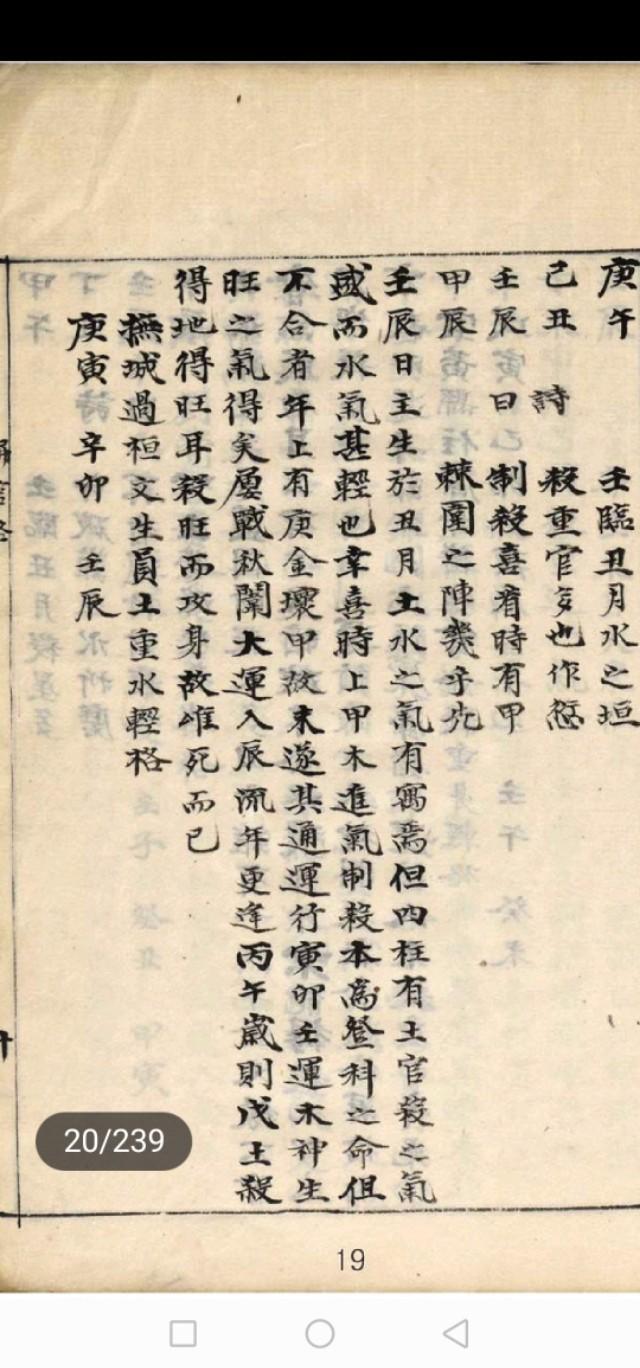 庚午　　　　壬臨丑月水之垣
己丑　詩　殺重官多也作愆
壬辰日　制殺喜看時有甲
甲辰　　　棘圍之陣幾乎先
壬辰日主生於丑月土水之氣有寓焉但四柱有土官殺之氣
盛而水氣甚輕也幸喜時上甲木進氣制殺本為登科之命但
不合者年上有庚金壞甲故未遂其通運行寅卯壬運木神生
旺之氣得矣屢戰秋闈大運入辰流年更逢丙午歲則戊土殺
得地得旺耳殺旺而攻身故唯死而已
撫城過桓文生員土重水輕格
庚寅　辛卯　壬辰
20/239
19